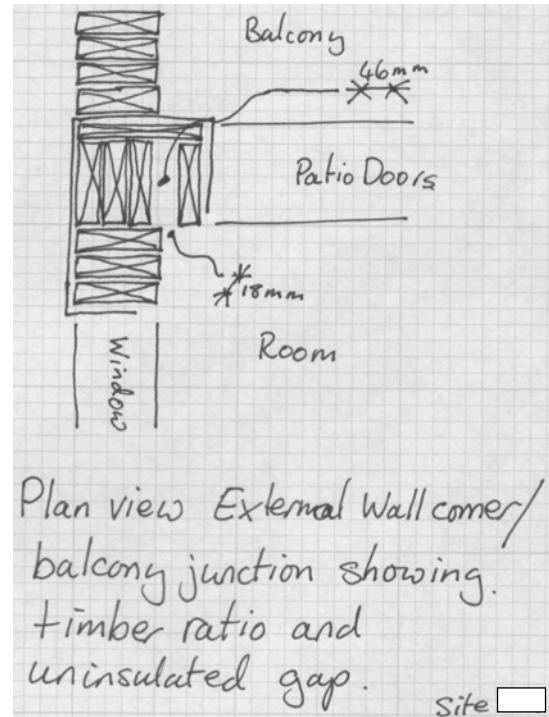 Balcony
46mm
Patio Doors
18mm
Room
Window
Plan view External Wall corner/
balcony junction showing.
timber ratio and
uninsulated gap.
Site